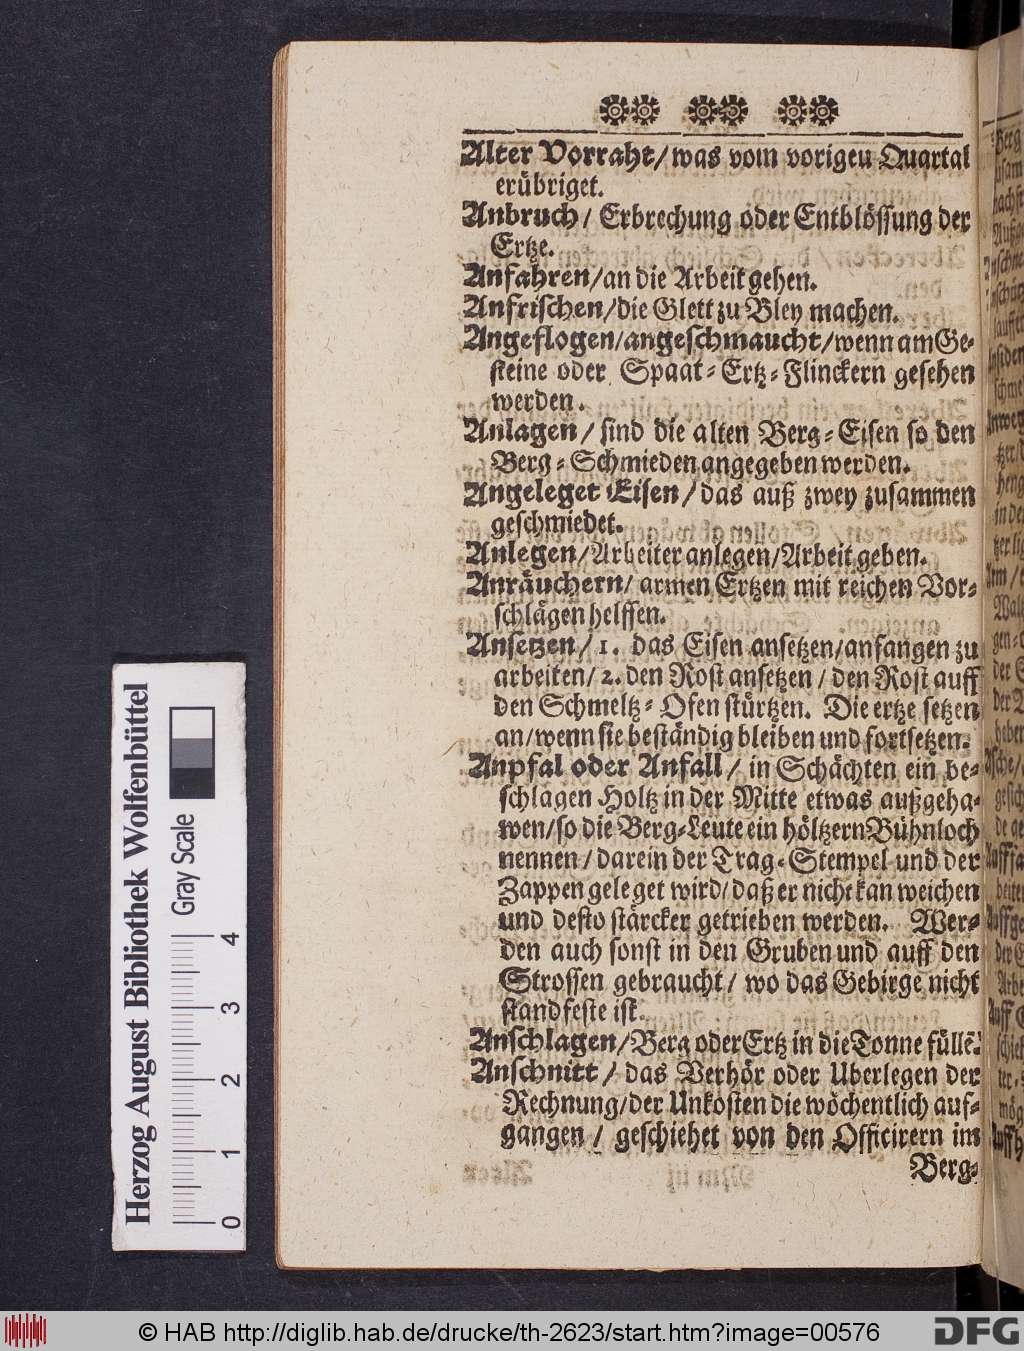 Alter Vorraht/ was vom vorigen Quartal
erübriget.
Anbruch/ Erbrechung oder Entblössung der
Ertze.
Anfahren/an die Arbeit gehen.
Anfrischen/die Glett zu Bley machen.
Angeflogen/angeschmaucht/wenn am Ge-
steine oder Spaat-Ertz-Flinckern gesehen
werden.
Anlagen/ sind die alten Berg-Eisen so den
Berg-Schmieden angegeben werden.
Angeleget Eisen/ das auß zwey zusammen
geschmiedet.
Anlegen/Arbeiter anlegen/Arbeit geben.
Anräuchern/ armen Ertzen mit reichen Vor-
schlägen helffen.
Ansetzen/ 1. das Eisen ansetzen/anfangen zu
arbeiten/ 2. den Rost ansetzen/ den Rost auff
den Schmeltz-Ofen stürtzen. Die ertze setzen
an/wenn sie beständig bleiben und fortsetzen.
Anpfal oder Anfall/ in Schächten ein be-
schlagen Holtz in der Mitte etwas außgeha-
wen/so die Berg-Leute ein höltzern Bühnloch
nennen/ darein der Trag-Stempel und der
Zappen geleget wird/ daß er nicht kan weichen
und desto stärcker getrieben werden. Wer-
den auch sonst in den Gruben und auff den
Strossen gebraucht/ wo das Gebirge nicht
standfeste ist.
Anschlagen/Berg oder Ertz in die Tonne füllē.
Anschnitt/ das Verhör oder Uberlegen der
Rechnung/der Unkosten die wöchentlich auf-
gangen/ geschiehet von den Officirern im
Berg-
Herzog August Bibliothek Wolfenbüttel
Gray Scale
0 1 2 3 4
© HAB http://diglib.hab.de/drucke/th-2623/start.htm?image=00576
DFG